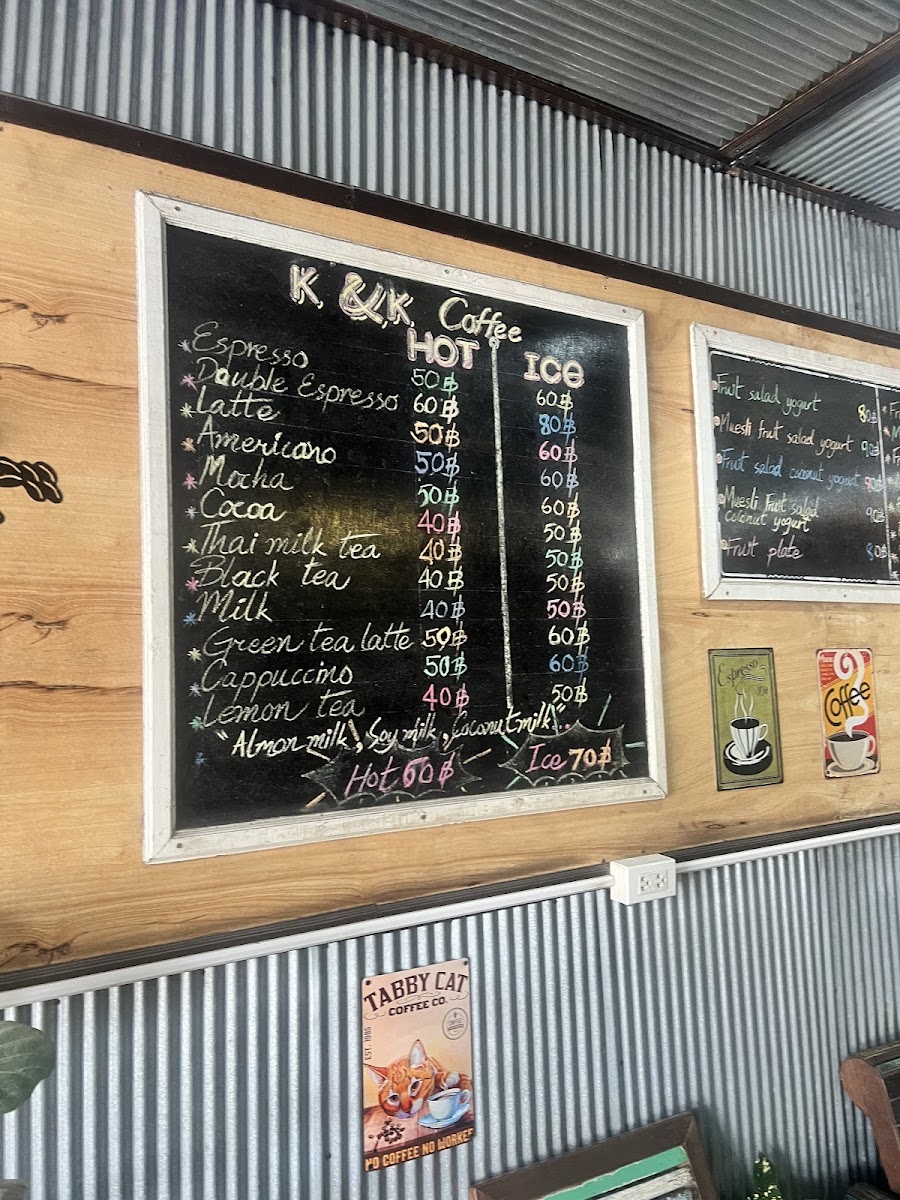 K. & K. Coffee
HOT ICE
*Espresso 50฿ 60฿
*Double Espresso 60฿ 80฿
*Latte 50฿ 60฿
*Americano 50฿ 60฿
*Mocha 50฿ 60฿
*Cocoa 40฿ 50฿
*Thai milk tea 40฿ 50฿
*Black tea 40฿ 50฿
*Milk 40฿ 50฿
*Green tea latte 50฿ 60฿
*Cappuccino 50฿ 60฿
*Lemon tea 40฿ 50฿
"Almon milk, Soy milk, Coconut milk"..
Hot 60฿ Ice 70฿
Fruit salad yogurt 80฿
Muesli fruit salad yogurt 90฿
Fruit salad coconut yogurt 90฿
Muesli Fruit salad
coconut yogurt 90฿
Fruit plate 80฿
Espresso
Coffee
TABBY CAT
COFFEE CO.
EST. 1986
NO COFFEE NO WORKEE